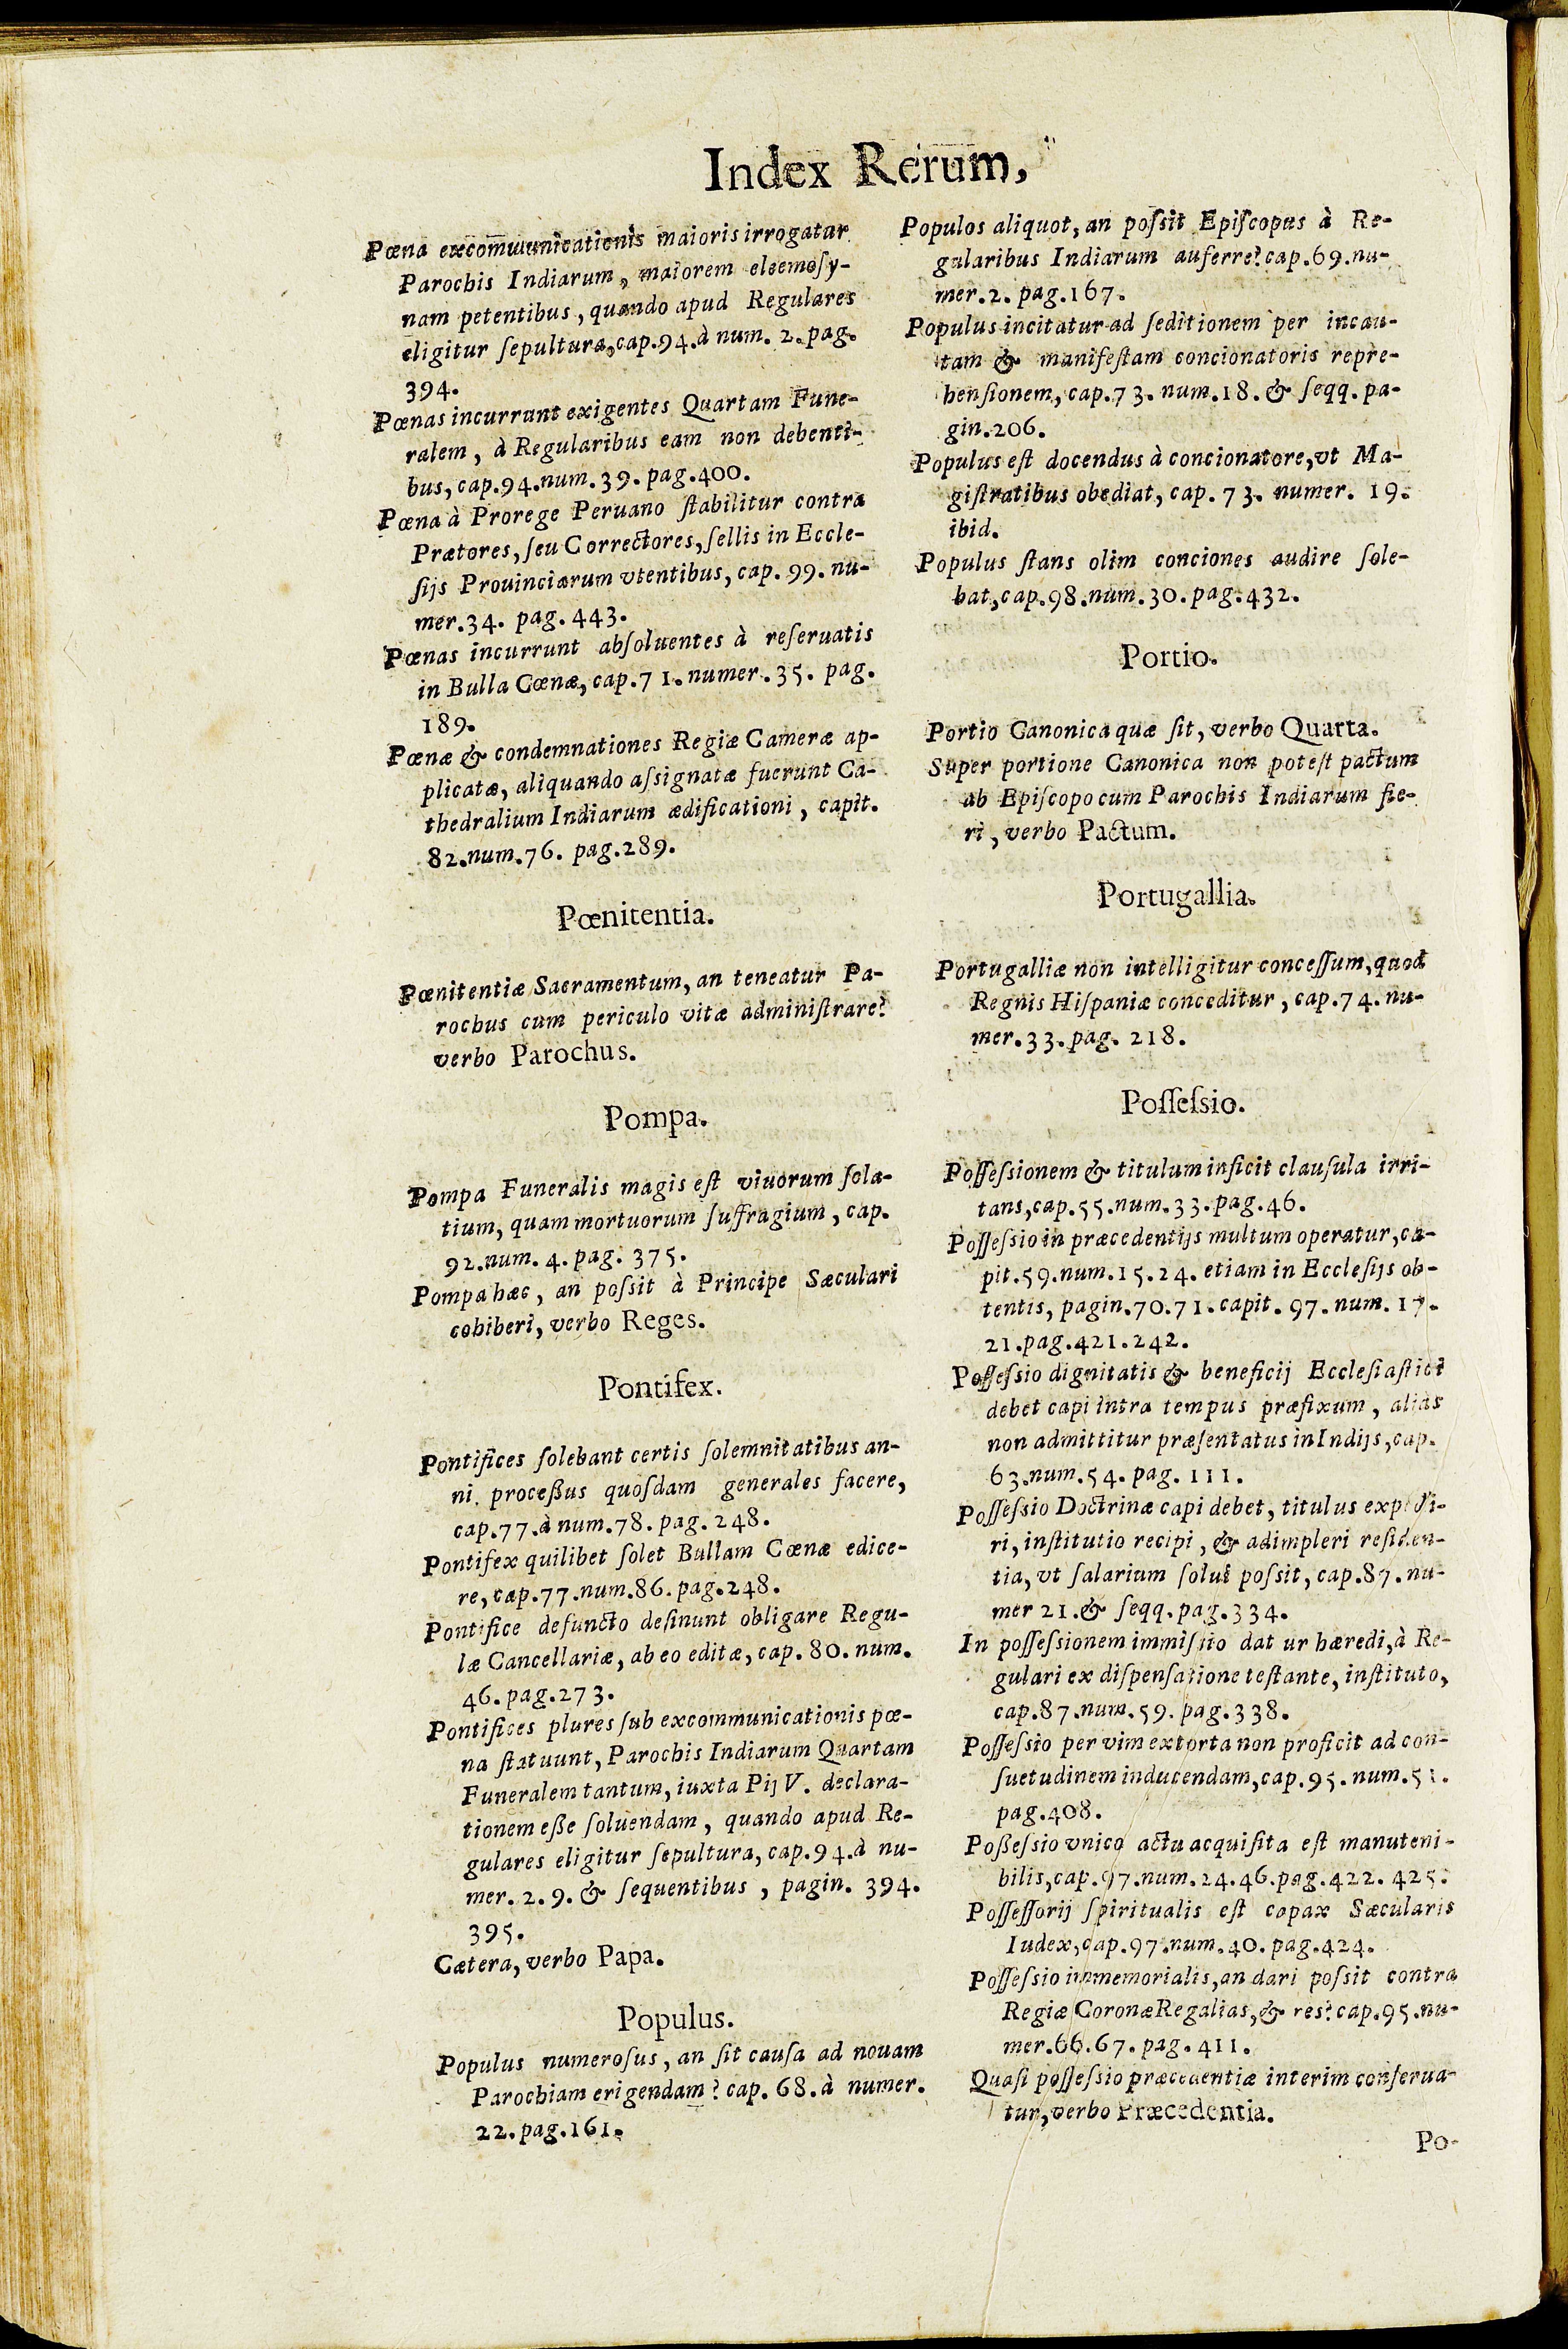 Index Rerum,
Pœna excommunicationis maioris irrogatar
Parochis Indiarum, maiorem eleemosy-
nam petentibus, quando apud Regulares
eligitur sepultura, cap.94.à num. 2. pag.
394.
Pœnas incurrunt exigentes Quartam Fune-
ralem, à Regularibus eam non debenti-
bus, cap.94.num.39.pag.400.
Pœna à Prorege Peruano stabilitur contra
Prætores, seu Correctores, sellis in Eccle-
sijs Prouinciarum vtentibus, cap. 99. nu-
mer.34. pag. 443.
Pœnas incurrunt absoluentes à reseruatis
in Bulla Cœnæ, cap.71.numer.35. pag.
189.
Pœnæ & condemnationes Regiæ Cameræ ap-
plicatæ, aliquando assignatæ fuerunt Ca-
thedralium Indiarum ædificationi, capit.
82.num.76. pag.289.
Pœnitentia.
Pœnitentiæ Sacramentum, an teneatur Pa-
rochus cum periculo vitæ administrare?
verbo Parochus.
Pompa.
Pompa Funeralis magis est viuorum sola-
tium, quam mortuorum suffragium, cap.
92.num. 4. pag. 375.
Pompa hæc, an possit à Principe Sæculari
cohiberi, verbo Reges.
Pontifex.
Pontifices solebant certis solemnitatibus an-
ni. proceßus quosdam generales facere,
cap.77.à num.78. pag. 248.
Pontifex quilibet solet Bullam Cœnæ edice-
re, cap.77.num.86. pag.248.
Pontifice defuncto desinunt obligare Regu-
læ Cancellariæ, ab eo editæ, cap. 80. num.
46. pag.273.
Pontifices plures sub excommunicationis pœ-
na statuunt, Parochis Indiarum Quartam
Funeralem tantum, iuxta Pij V. declara-
tionem eße soluendam, quando apud Re-
gulares eligitur sepultura, cap.94.à nu-
mer. 2.9. & sequentibus, pagin. 394.
395.
Cætera, verbo Papa.
Populus.
Populus numerosus, an sit causa ad nouam
Parochiam erigendam? cap. 68. à numer.
22.pag.161.
Populos aliquot, an possit Episcopus à Re-
gularibus Indiarum auferre? cap.69.nu-
mer.2. pag.167.
Populus incitatur ad seditionem per incau-
tam & manifestam concionatoris repre-
hensionem, cap.73. num.18. & seqq. pa-
gin.206.
Populus est docendus à concionatore, vt Ma-
gistratibus obediat, cap. 73. numer. 19.
ibid.
Populus stans olim conciones audire sole-
bat, cap.98.num.30.pag.432.
Portio.
Portio Canonica quæ sit, verbo Quarta.
Super portione Canonica non potest pactum
ab Episcopo cum Parochis Indiarum fie-
ri, verbo Pactum.
Portugallia.
Portugalliæ non intelligitur concessum, quod
Regnis Hispaniæ conceditur, cap.74. nu-
mer.33.pag. 218.
Possessio.
Possessionem & titulum inficit clausula irri-
tans, cap.55.num.33.pag.46.
Possessio in præcedentijs multum operatur, ca-
pit.59.num.15.24. etiam in Ecclesijs ob-
tentis, pagin.70.71. capit. 97. num. 17.
21.pag.421.242.
Possessio dignitatis & beneficij Ecclesiastici
debet capi intra tempus præfixum, alias
non admittitur præsentatus in Indijs, cap.
63.num.54. pag. 111.
Possessio Doctrinæ capi debet, titulus expedi-
ri, institutio recipi, & adimpleri residen-
tia, vt salarium solui possit, cap.87. nu-
mer 21.& seqq. pag.334.
In possessionem immissio dat ur hæredi, à Re-
gulari ex dispensatione testante, instituto,
cap.87.num.59. pag.338.
Possessio per vim extorta non proficit ad con-
suetudinem inducendam, cap.95. num.51.
pag.408.
Poßessio vnico actu acquisita est manuteni-
bilis, cap.97.num.24.46.pag.422. 425.
Possessorij spiritualis est capax Sæcularis
Iudex, cap.97.num.40. pag.424.
Possessio immemorialis, an dari possit contra
Regiæ Coronæ Regalias, & res? cap.95.nu-
mer.66.67. pag. 411.
Quasi possessio præcedentiæ interim conserua-
tur, verbo Præcedentia.
Po-